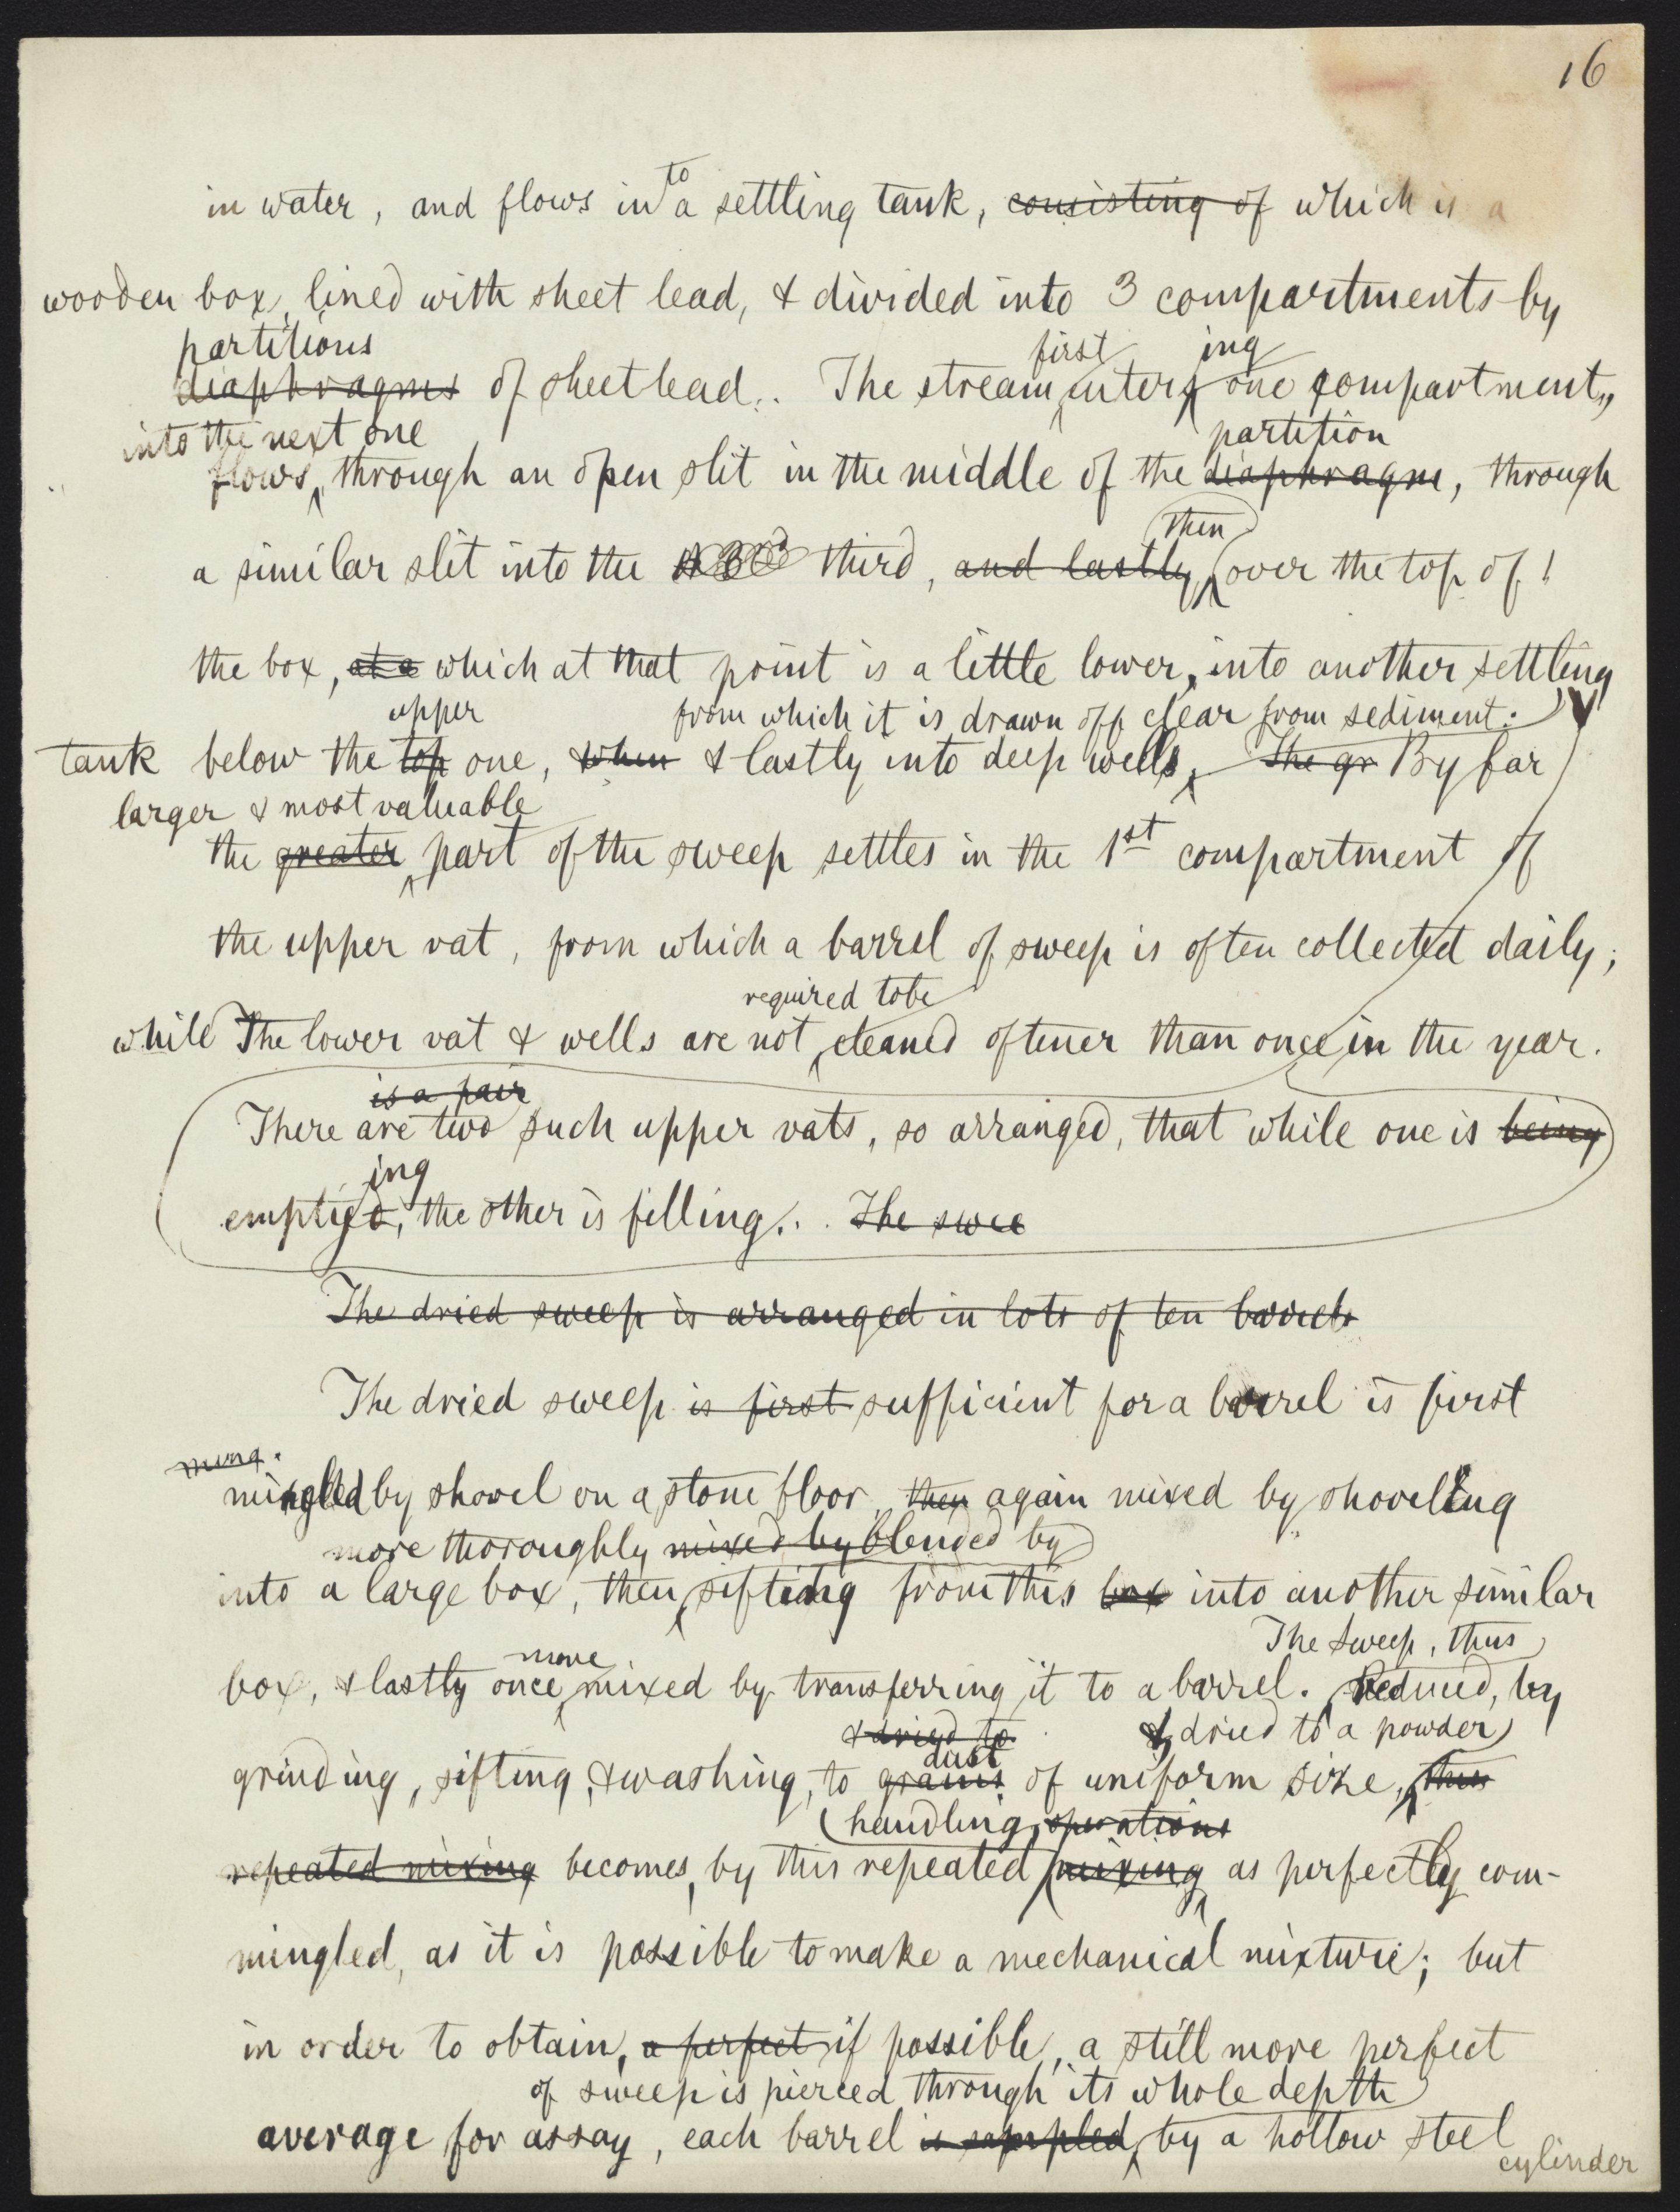 16
to
in water, and flows in a settling tank, consisting of which is a
wooden box, lined with sheet lead, & divided into 3 compartments by
partitions first ing
diaphragms of sheet lead. The stream enters one compartment,
into the next one partition
flows, through an open slit in the middle of the diaphragm, through
then
a similar slit into the third, and lastly, over the top of
the box, at a which at that point is a little lower, into another settling
upper from which it is drawn off clear from sediment.
tank below the top one, when & lastly into deep wells, The gr By far
larger & most valuable
the greater part of the sweep settles in the 1st compartment of
the upper vat, from which a barrel of sweep is often collected daily;
required to be
while The lower vat & wells are not cleaned oftener than once in the year.
is a pair
There are two such upper vats, so arranged, that while one is being
ing
emptied, the other is filling. The swee
The dried sweep is arranged in lots of ten barrels
The dried sweep is first sufficient for a barrel is first
ming.
mingled by shovel on a stone floor, then again mixed by shovelling
more thoroughly mixed by blended by
into a large box, then sifting from this box into another similar
more The sweep, thus
box, & lastly once mixed by transferring it to a barrel. Reduced, by
& dried to & dried to a powder
dust
grinding, sifting, & washing, to grains of uniform size, thus
handling, operations
repeated mixing becomes, by this repeated mixing as perfectly com-
mingled, as it is possible to make a mechanical mixture; but
in order to obtain, a perfect if possible, a still more perfect
of sweep is pierced through its whole depth
average for assay, each barrel is sampled, by a hollow steel
cylinder